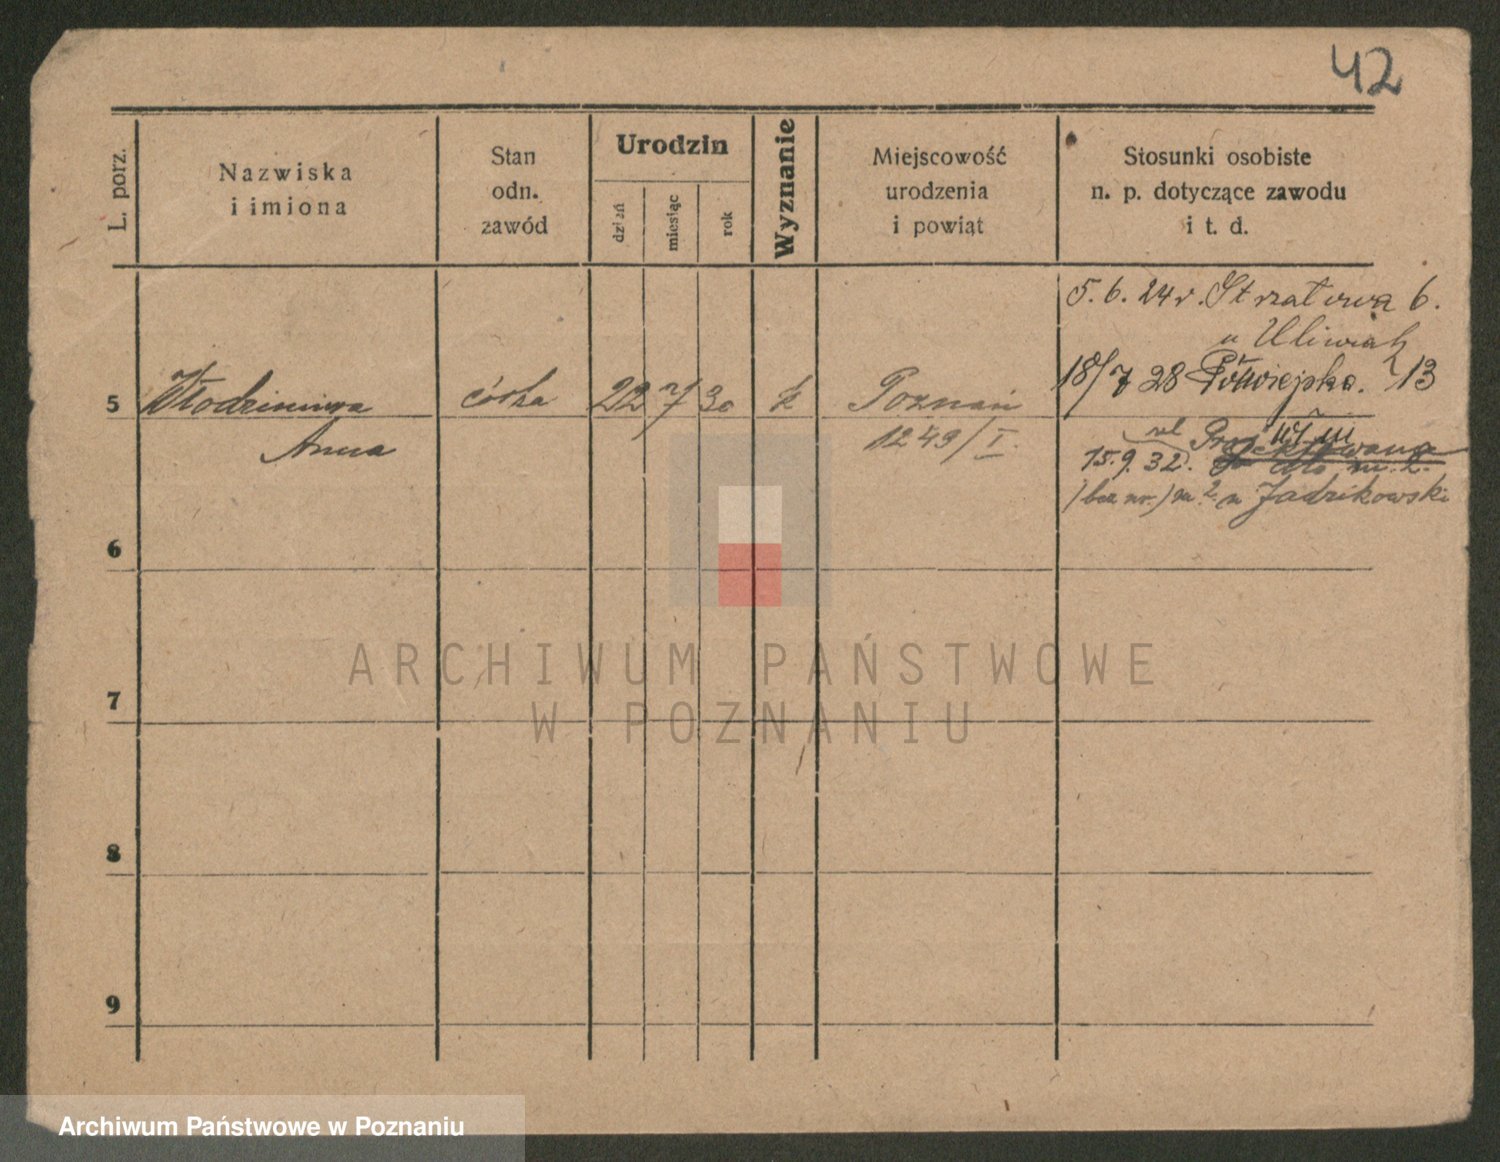 42
L. porz.
Nazwiska
i imiona
Stan
odn.
zawód
Urodzin
dzień
miesiąc
rok
Wyznanie
Miejscowość
urodzenia
i powiąt
Stosunki osobiste
n. p. dotyczące zawodu
i t. d.
5. 6. 24 r. Strzałowa 6.
u Uliwiak
18/7 28 Półwiejska. 13
5 Włodzimira córka 22 7 30 k Poznań
Anna
1249/I.
15. 9. 32.
(bez nr.) m 2 u Jadzikowski
6
7
8
9
ARCHIWUM PAŃSTWOWE
W POZNANIU
Archiwum Państwowe w Poznaniu